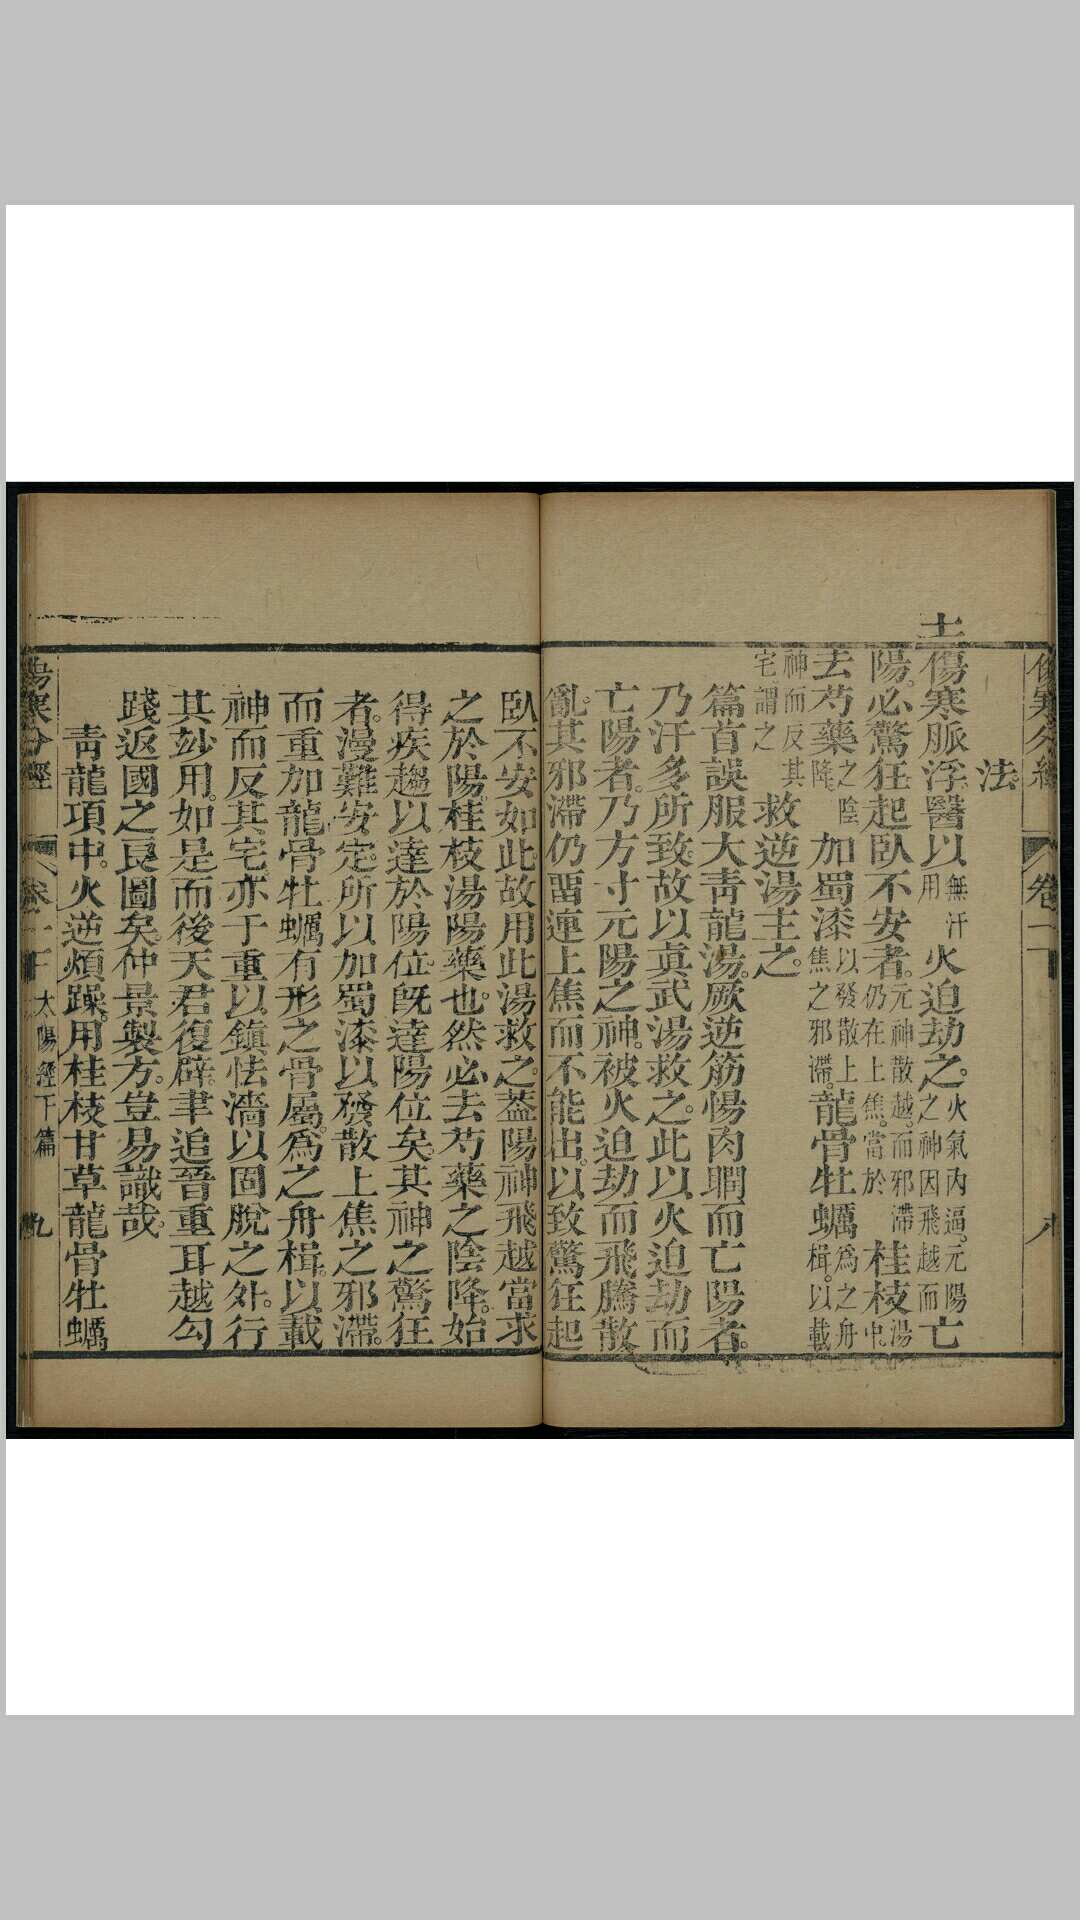 傷寒分經 卷一下 八
法
十二
傷寒脈浮醫以無汗用火迫劫之火氣內逼元陽之神因飛越而亡
陽必驚狂起臥不安者元神散越而邪滯仍在上焦當於桂枝湯中
去芍藥之陰降加蜀漆以發散上焦之邪滯龍骨牡蠣為之舟楫以載
神而反其宅謂之救逆湯主之
篇首誤服大靑龍湯厥逆筋惕肉瞤而亡陽者
乃汗多所致故以眞武湯救之此以火迫劫而
亡陽者乃方寸元陽之神被火迫劫而飛騰散
亂其邪滯仍畱連上焦而不能出以致驚狂起
臥不安如此故用此湯救之蓋陽神飛越當求
之於陽桂枝湯陽藥也然必去芍藥之陰降始
得疾趨以達於陽位旣達陽位矣其神之驚狂
者漫難安定所以加蜀漆以發散上焦之邪滯
而重加龍骨牡蠣有形之骨屬為之舟楫以載
神而反其宅亦于重以鎮怯濇以固脫之外行
其妙用如是而後天君復辟聿追晉重耳越勾
踐返國之良圖矣仲景製方豈易識哉
靑龍項中火逆煩躁用桂枝甘草龍骨牡蠣
傷寒分經 卷一下 太陽經下篇 九